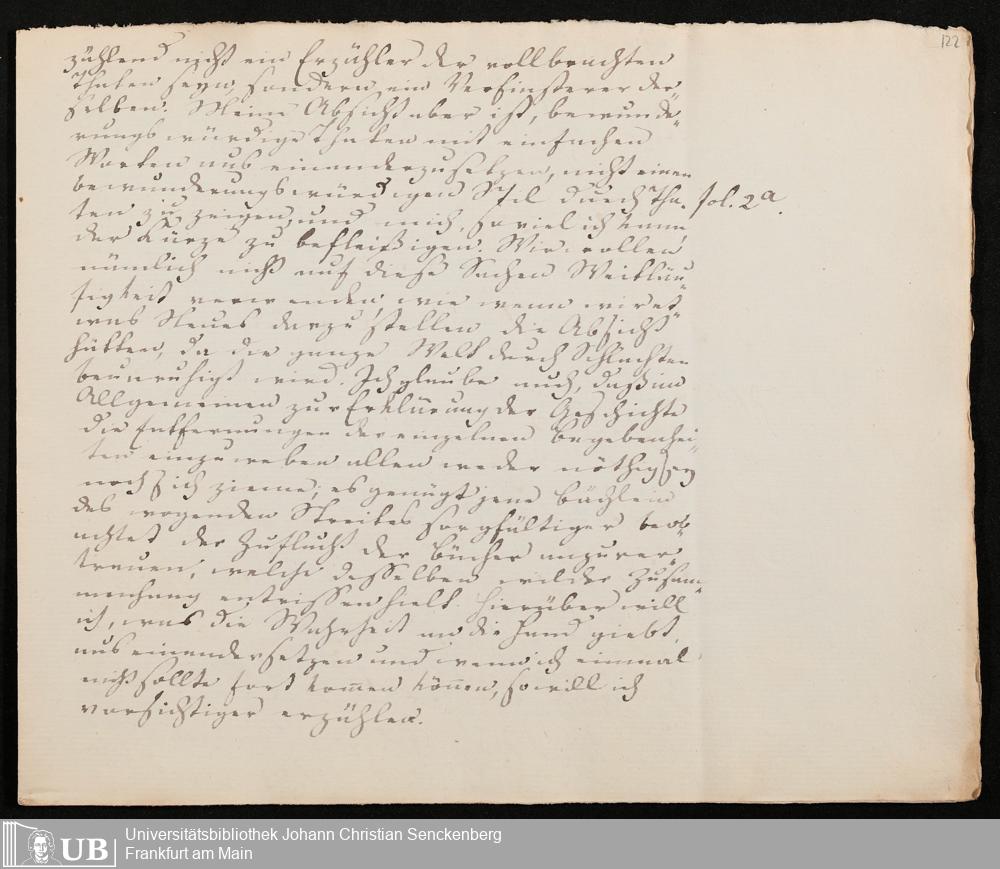 122
zählend nicht ein Erzähler der vollbrachten
Thaten seyn, sondern ein Verfinsterer der-
selben. Meine Absicht aber ist, bewunde-
rungswürdige Thaten mit einfachen
Worten aus einanderzusetzen, nicht einen
bewunderungswürdigen Stil durch Tha- fol. 2a.
ten zu zeigen, und mich, so viel ich kann
der Kürze zu befleißigen. Wir wollen
nämlich nicht auf diese Sachen Weitläu-
figkeit verwenden, wie wenn wir et-
was Neues darzustellen die Absicht
hätten, da die ganze Welt durch Schlachten
beunruhigt wird. Ich glaube auch, daß im
Allgemeinen zur Erklärung der Geschichte
die Entfernungen der einzelnen Begebenhei-
ten einzuweben allen weder nöthig sey
noch sich zieme; es genügt jene
des wogenden Streites sorgfältiger beob-
achtet der Zuflucht der Bücher anzuver-
trauen, welche desselben wilder Zusam-
menhang entrissen hielt. Hierüber will
ich, was die Wahrheit an die Hand giebt,
aus einandersetzen und wenn ich einmal
nicht sollte fort kommen können, so will ich
vorsichtiger erzählen.
UB
Universitätsbibliothek Johann Christian Senckenberg
Frankfurt am Main